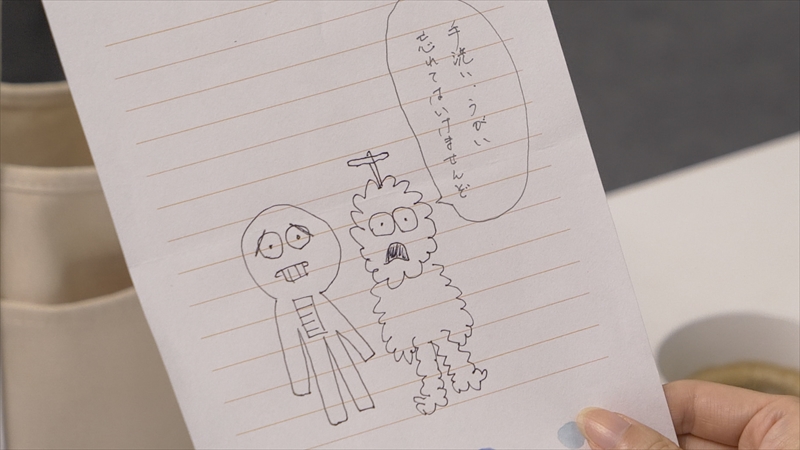 手洗い、うがい
忘れてはいけませんぞ